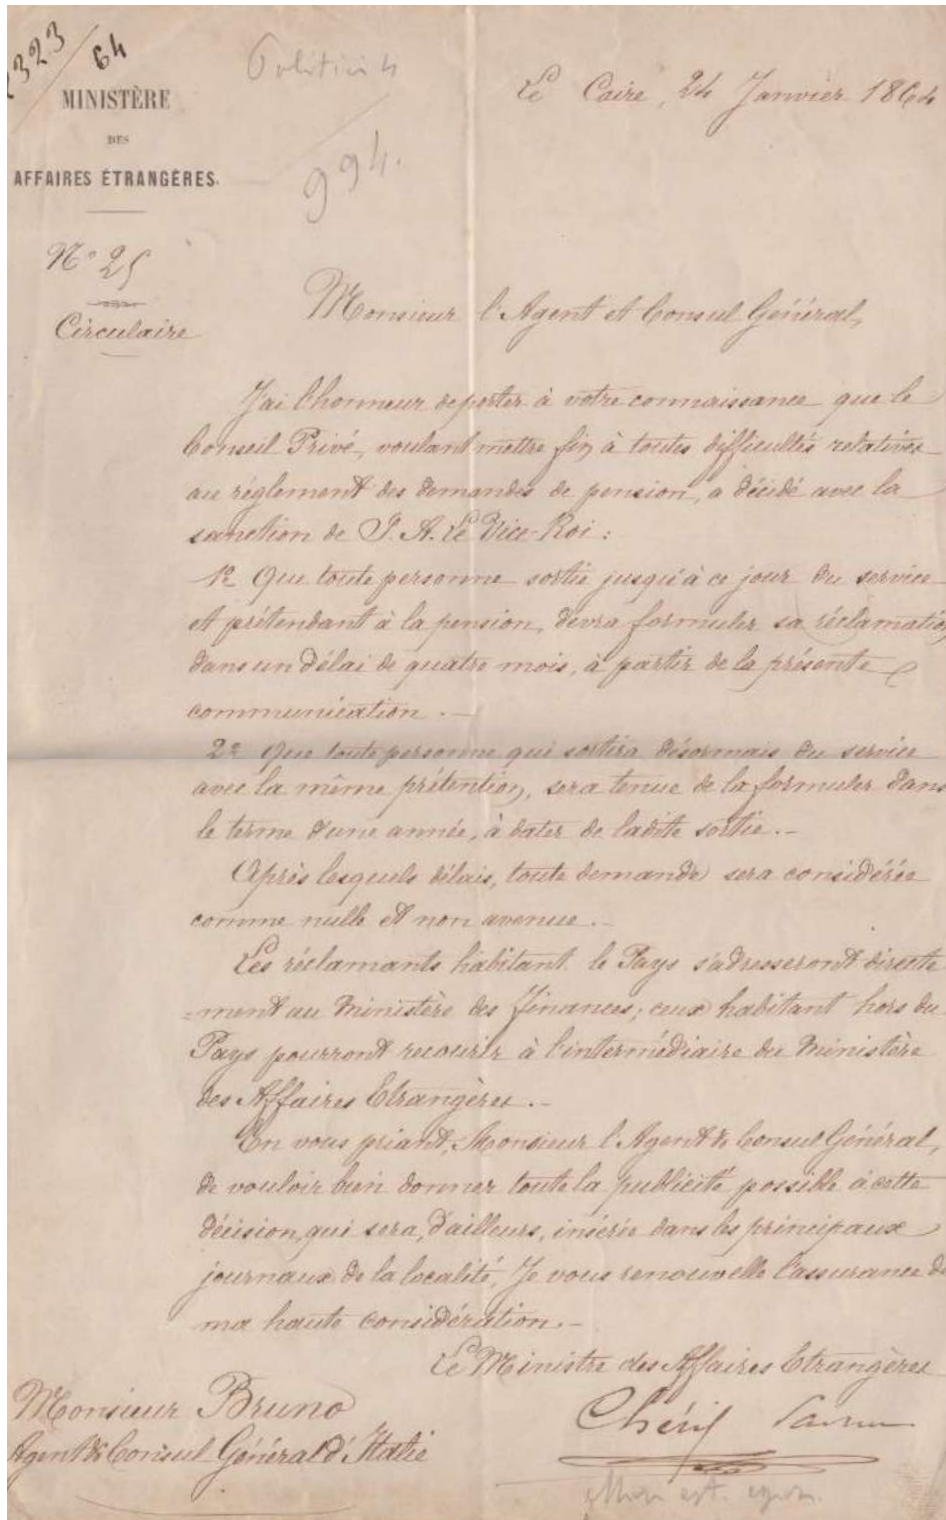 323/64
Politici
994.
MINISTÈRE
DES
AFFAIRES ÉTRANGÈRES.
Le Caire, 24 Janvier 1864
N° 25
Circulaire
Monsieur l'Agent et Consul Général,
J'ai l'honneur de porter à votre connaissance que le
Conseil Privé, voulant mettre fin à toutes difficultés relatives
au réglement des demandes de pension, a décidé avec la
sanction de S. A. Le Vice-Roi :
1° Que toute personne sortie jusqu'à ce jour du service
et prétendant à la pension, devra formuler sa réclamation
dans un délai de quatre mois, à partir de la présente
communication .-
2° Que toute personne qui sortira désormais du service
avec la même prétention, sera tenue de la formuler dans
le terme d'une année, à dater de ladite sortie .-
Après lesquels délais, toute demande sera considérée
comme nulle et non avenue .-
Les réclamants habitant le Pays s'adresseront directe
=ment au Ministère des Finances; ceux habitant hors du
Pays pourront recourir à l'intermédiaire du Ministère
des Affaires Etrangères .-
En vous priant, Monsieur l'Agent & Consul Général,
de vouloir bien donner toute la publicité possible à cette
décision, qui sera, d'ailleurs, insérée dans les principaux
journaux de la localité, Je vous renouvelle l'assurance de
ma haute considération .-
Le Ministre des Affaires Etrangères
Chérif
Monsieur Bruno
Agent & Consul Général d'Italie